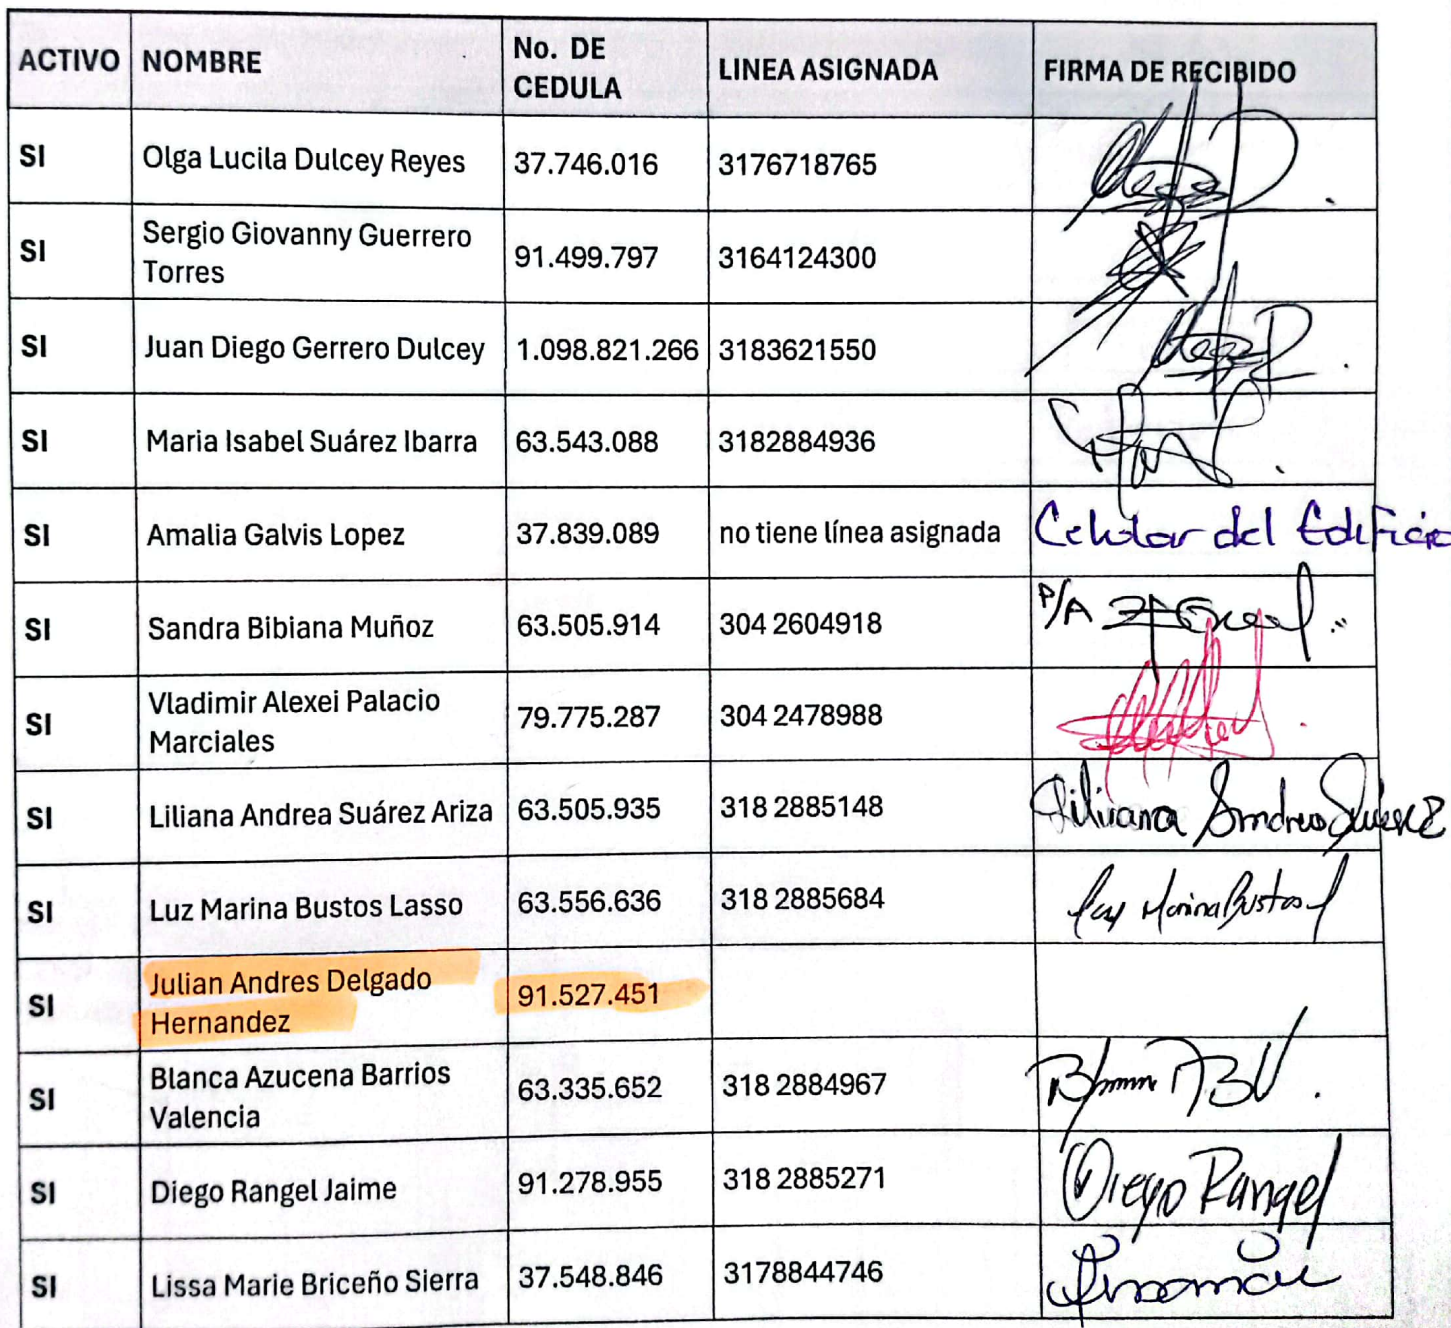 ACTIVO NOMBRE No. DE CEDULA LINEA ASIGNADA FIRMA DE RECIBIDO
SI Olga Lucila Dulcey Reyes 37.746.016 3176718765
SI Sergio Giovanny Guerrero Torres 91.499.797 3164124300
SI Juan Diego Gerrero Dulcey 1.098.821.266 3183621550
SI Maria Isabel Suárez Ibarra 63.543.088 3182884936
SI Amalia Galvis Lopez 37.839.089 no tiene línea asignada Celular del Edificio
SI Sandra Bibiana Muñoz 63.505.914 304 2604918 P/A
SI Vladimir Alexei Palacio Marciales 79.775.287 304 2478988
SI Liliana Andrea Suárez Ariza 63.505.935 318 2885148 Liliana Andrea Suárez
SI Luz Marina Bustos Lasso 63.556.636 318 2885684 Luz Marina Bustos
SI Julian Andres Delgado Hernandez 91.527.451
SI Blanca Azucena Barrios Valencia 63.335.652 318 2884967
SI Diego Rangel Jaime 91.278.955 318 2885271 Diego Rangel
SI Lissa Marie Briceño Sierra 37.548.846 3178844746